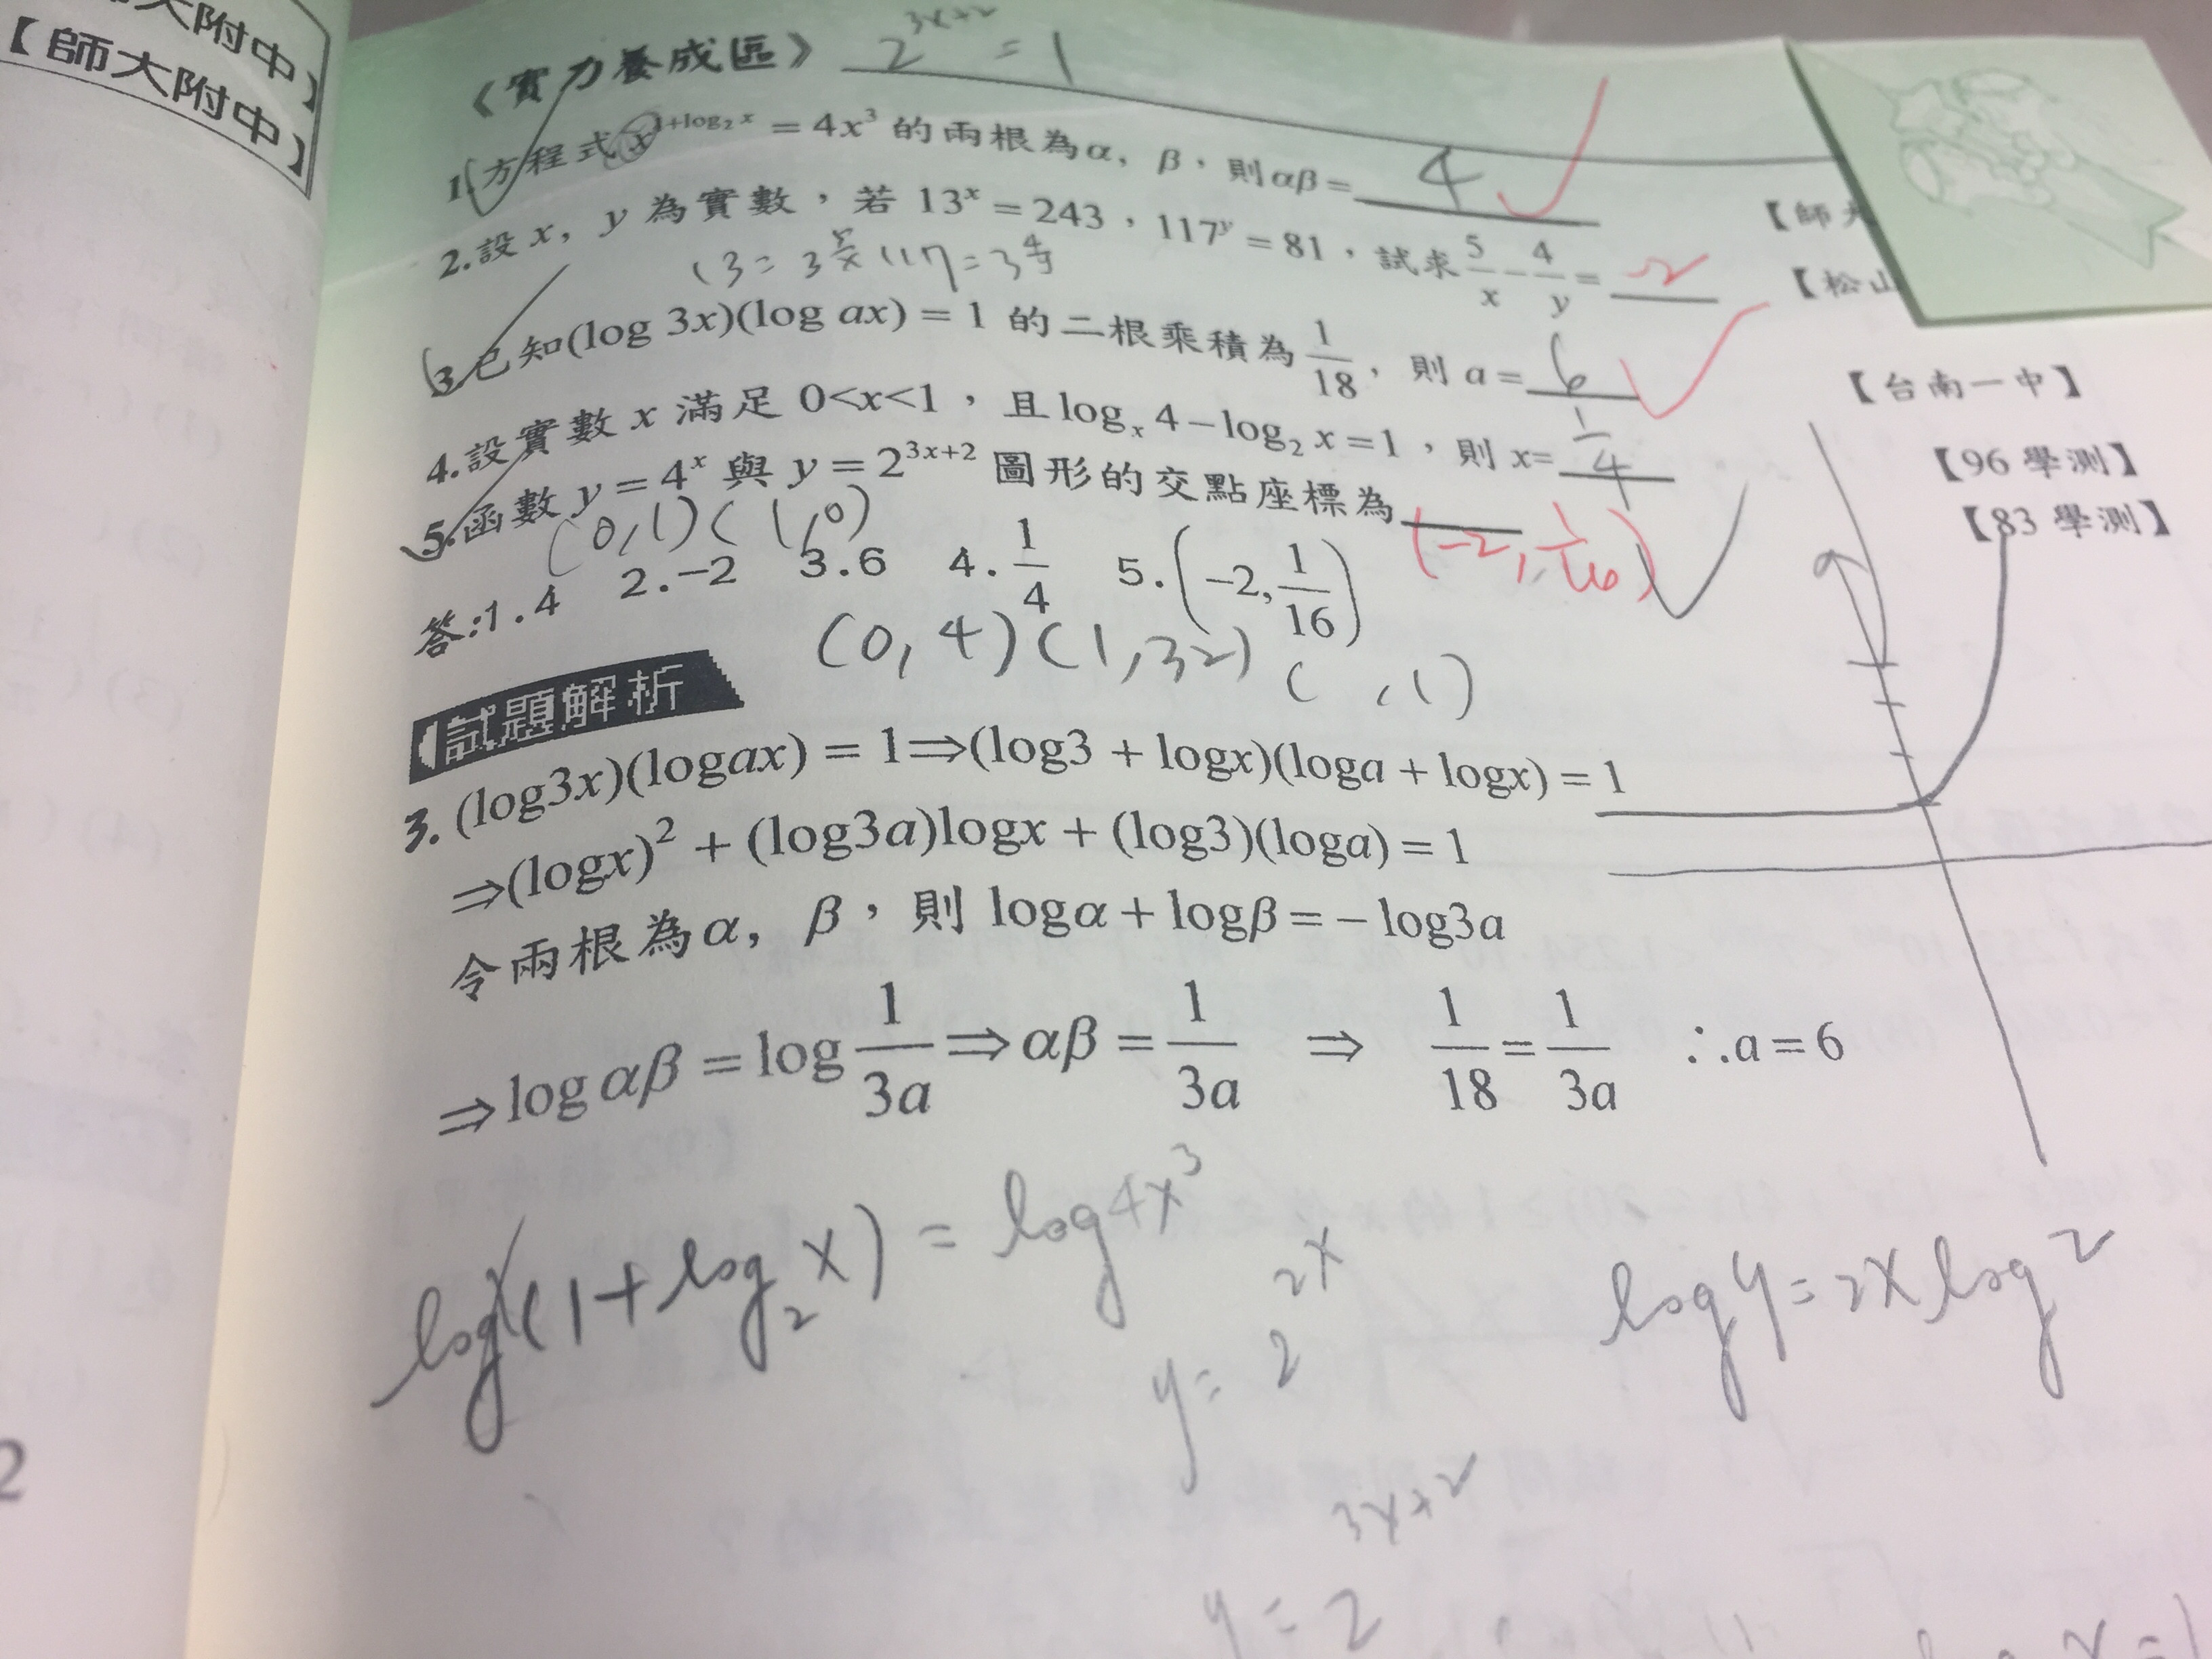 大附中】
【師大附中】
《實力養成區》 2^{3x+2} = 1
1.方程式x^{1+log₂x} = 4x³ 的兩根為α, β，則αβ= 4
【師大
2.設 x, y 為實數，若 13^x = 243，117^y = 81，試求 5/x − 4/y = -2
【松山
13 = 3^{5/x} 117 = 3^{4/y}
3.已知(log 3x)(log ax) = 1 的二根乘積為 1/18，則 a= 6
【台南一中】
4.設實數 x 滿足 0<x<1，且 logₓ 4 − log₂ x = 1，則 x= 1/4
【96 學測】
5.函數 y = 4^x 與 y = 2^{3x+2} 圖形的交點座標為 (-2, 1/16)
【83 學測】
(0,1) (1,0)
答:1.4 2.−2 3.6 4. 1/4 5. (−2, 1/16)
(0,4) (1,32) ( ,1)
試題解析
3. (log3x)(logax) = 1⇒(log3 + logx)(loga + logx) = 1
⇒(logx)² + (log3a)logx + (log3)(loga) = 1
令兩根為α, β，則 logα + logβ = − log3a
⇒log αβ = log 1/3a ⇒ αβ = 1/3a ⇒ 1/18 = 1/3a ∴a = 6
logx(1+log₂x) = log4x³
y = 2^{2x}
log y = 2x log 2
y = 2^{3x+2}
2